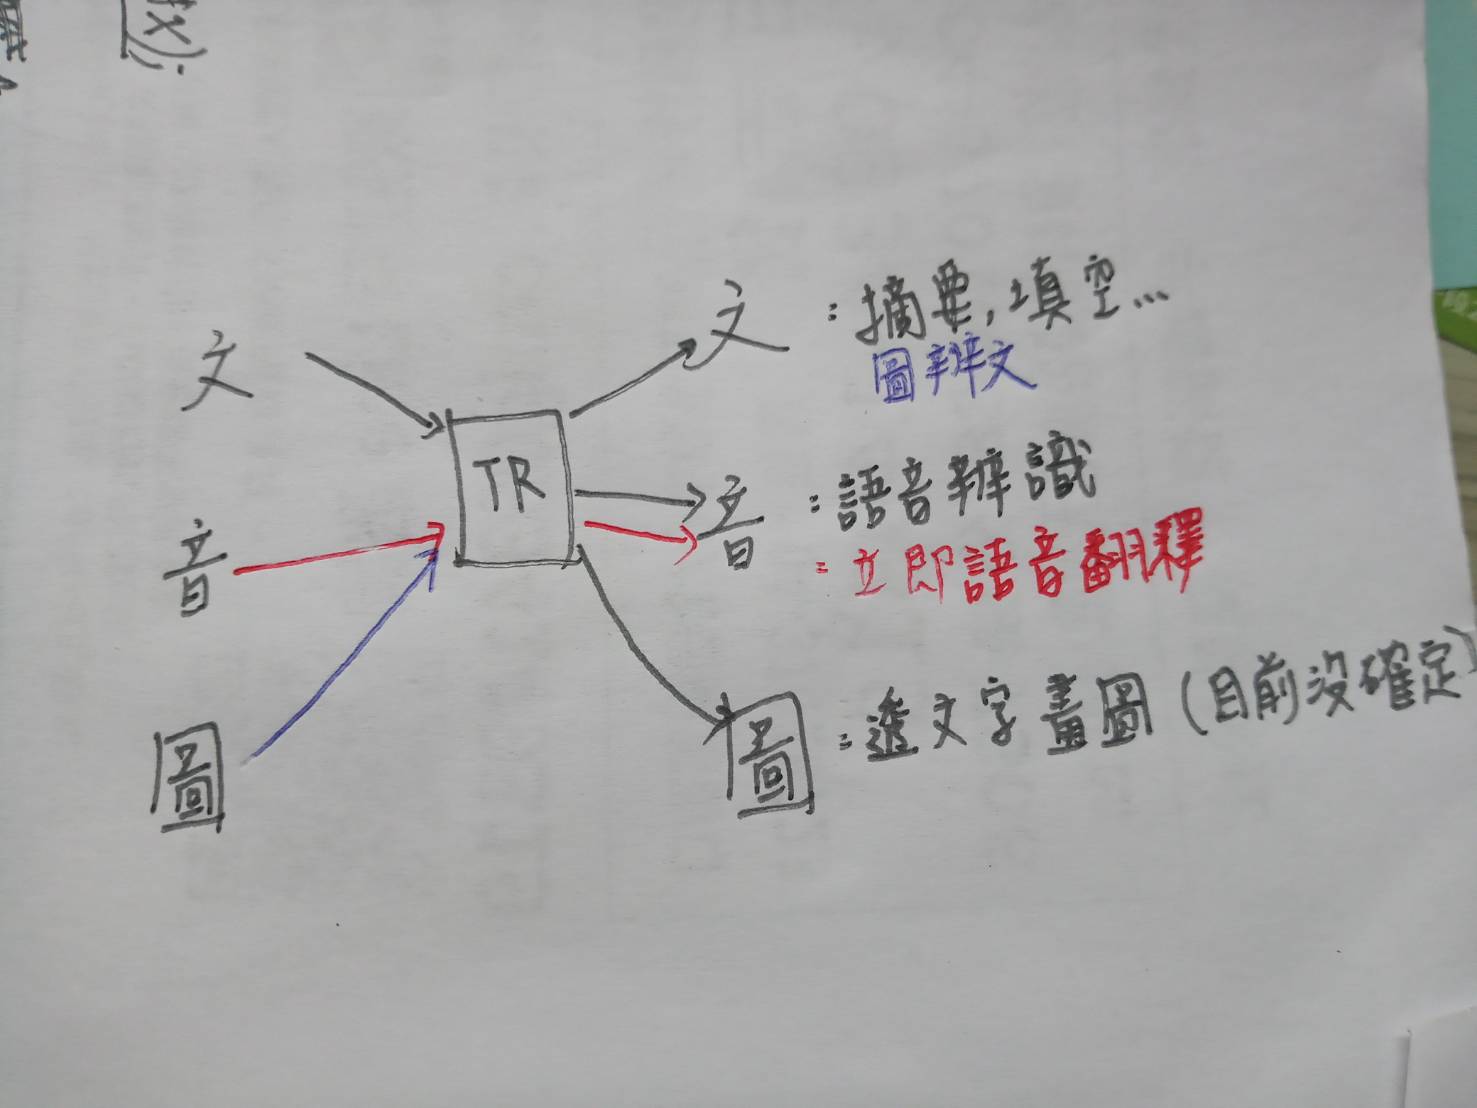 文
音
圖
TR
文：摘要,填空...
圖辨文
音：語音辨識
：立即語音翻釋
圖：透文字畫圖(目前沒確定)